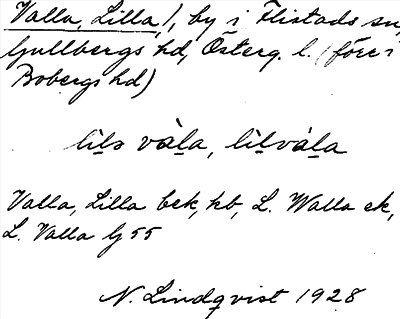 Valla, Lilla, by i Flistads sn,
Gullbergs hd, Österg. l. (förr i
Bobergs hd)
lịlə vàḷa, lịlvàḷa
Valla, Lilla bek, kb, L. Walla ek,
L. Valla lj 55
N. Lindqvist 1928